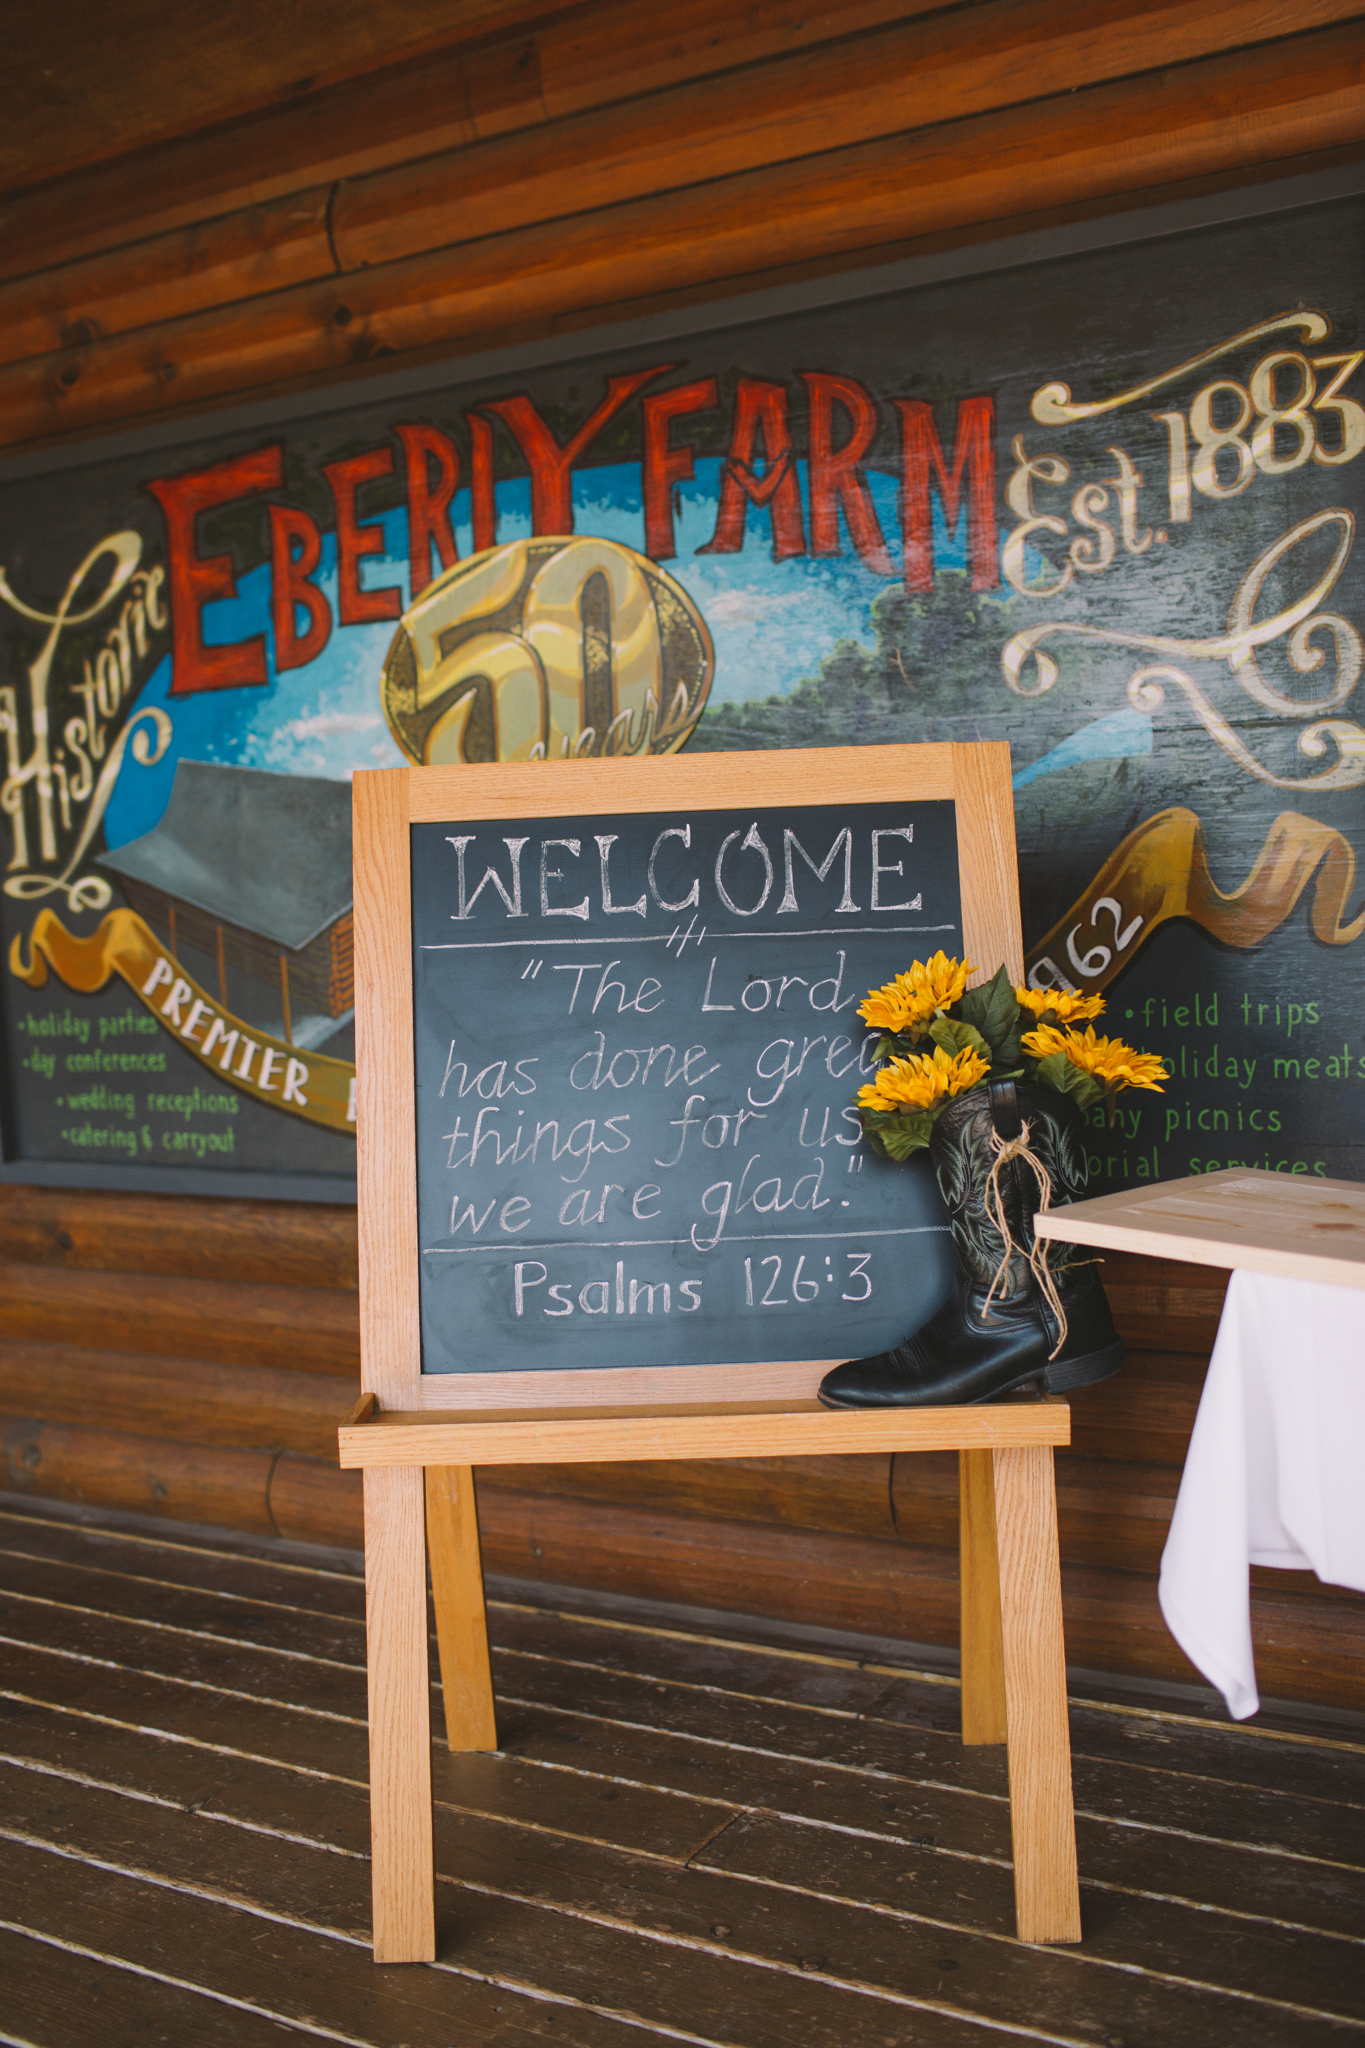 Historic
EBERLY FARM
Est. 1883
50
years
PREMIER
962
•holiday parties
•day conferences
•wedding receptions
•catering & carryout
•field trips
holiday meats
picnics
services
WELCOME
"The Lord
has done grea
things for us
we are glad."
Psalms 126:3